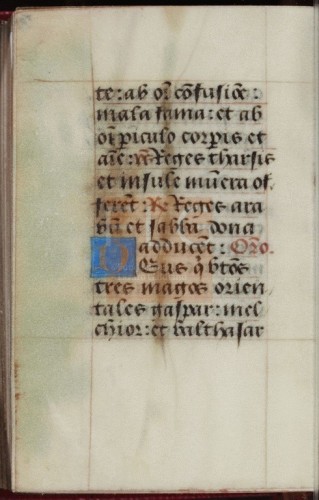 te: ab oi cōfusiōe:
mala fama: et ab
oi piculo corpis et
aīe: Reges tharsis
et insule mūera of
ferēt: Re Reges ara
bū et sabba dona
adducēt: Oro.
Deus q btōs
tres magos orien
tales gaspar: mel
chior: et balthasar